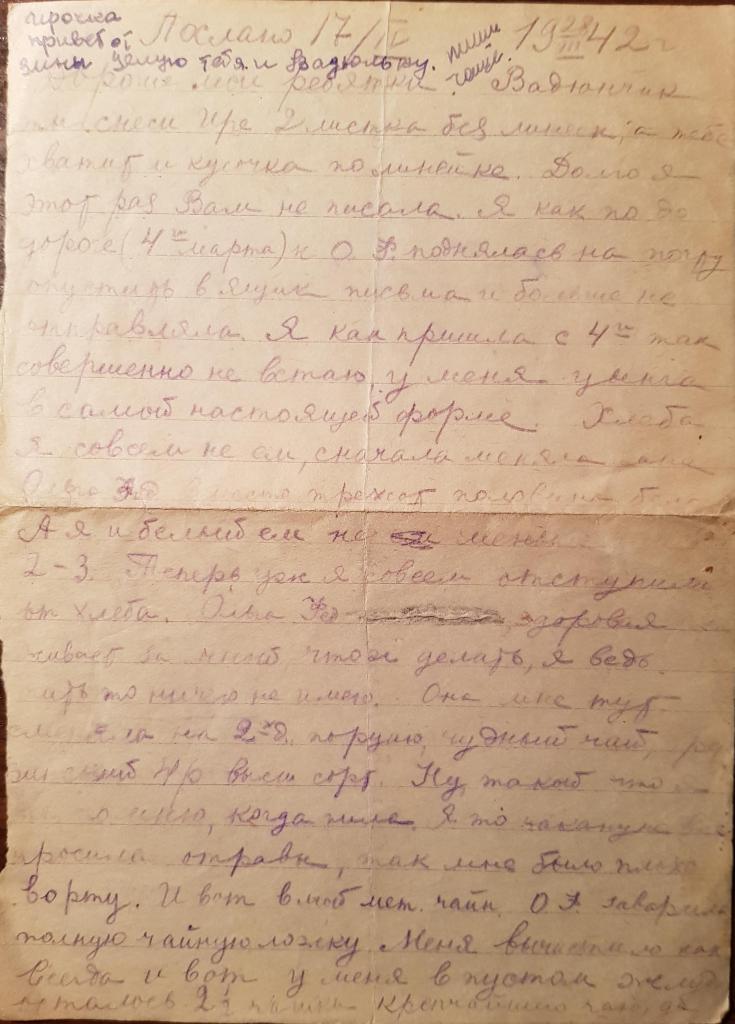 Ирочка
привет от
Зины целую тебя и Вадюльку. пиши
чаще.
Послано 17/IV 19 28/III 42 г
Хорошие мои ребятки. Вадюнчик
ты снеси Ире 2 листка без линеек, а тебе
хватит и кусочка по линейке. Долго я
этот раз Вам не писала. Я как по до
роге (4го марта) к О. Ф. поднялась на почту
опустить в ящик письма и больше не
отправляла. Я как пришла с 4го так
совершенно не встаю, у меня цынга
в самой настоящей форме. Хлеба
я совсем не ем, сначала меняла
Ольга Фед трехсот половина
А я и белый ем не меньше
2-3. Теперь уж я совсем отступила
от хлеба. Ольга Фед здоровья
за мной, что ж делать, я ведь
то ничего не имею. Она мне тут
на 2х д. порцию, чудный чай,
4 р высш сорт. Ну, такой что
когда пила. Я то накануне
просила отравы, так мне было плохо
во рту. И вот в мой мет. чайн. О. Ф. заварила
полную чайную ложку. Меня вычистило как
всегда и вот у меня в пустом желуд
осталось 2 чашки крепчайшего чаю, да